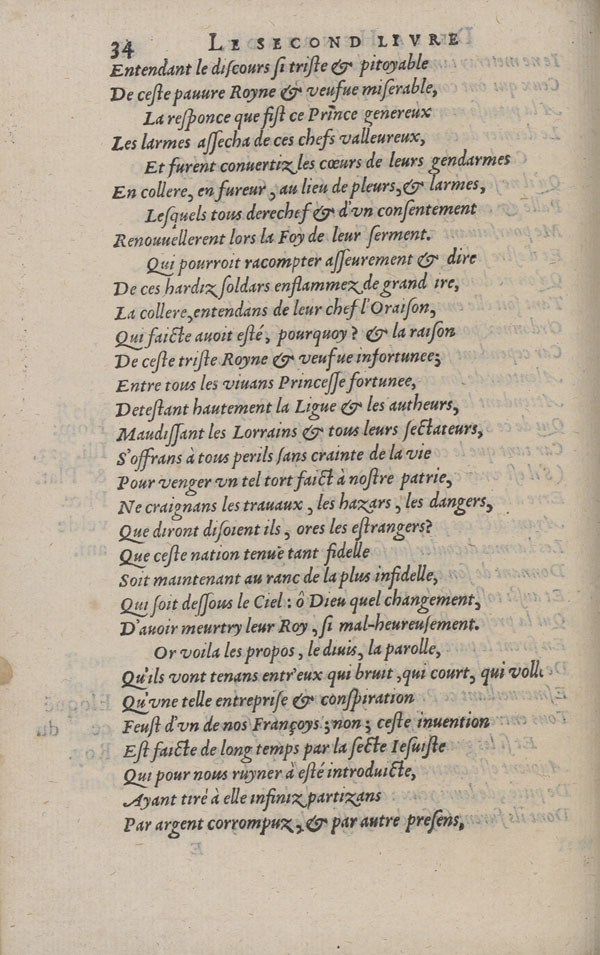 34 LE SECOND LIVRE
Entendant le diſcours ſi triſte & pitoyable
De ceſte pauure Royne & veufue miſerable,
La reſponce que fiſt ce Prince genereux
Les larmes aſſecha de ces chefs valleureux,
Et furent conuertiz les cœurs de leurs gendarmes
En collere, en fureur, au lieu de pleurs, & larmes,
Leſquels tous derechef & d'vn conſentement
Renouuellerent lors la Foy de leur ſerment.
Qui pourroit racompter aſſeurement & dire
De ces hardiz ſoldars enflammez de grand ire,
La collere, entendans de leur chef l'Oraiſon,
Qui faicte auoit eſté, pourquoy? & la raiſon
De ceſte triſte Royne & veufue infortunee;
Entre tous les viuans Princeſſe fortunee,
Deteſtant hautement la Ligue & les autheurs,
Maudiſſant les Lorrains & tous leurs ſectateurs,
S'offrans à tous perils ſans crainte de la vie
Pour venger vn tel tort faict à noſtre patrie,
Ne craignans les trauaux, les hazars, les dangers,
Que diront diſoient ils, ores les eſtrangers?
Que ceſte nation tenuë tant fidelle
Soit maintenant au ranc de la plus infidelle,
Qui ſoit deſſous le Ciel: ô Dieu quel changement,
D'auoir meurtry leur Roy, ſi mal-heureuſement.
Or voila les propos, le diuis, la parolle,
Qu'ils vont tenans entr'eux qui bruit, qui court, qui volle
Qu'vne telle entrepriſe & conſpiration
Feuſt d'vn de nos Françoys; non; ceſte inuention
Eſt faicte de long temps par la ſecte Ieſuiſte
Qui pour nous ruyner à eſté introduicte,
Ayant tiré à elle infiniz partizans
Par argent corrompuz, & par autre preſens,